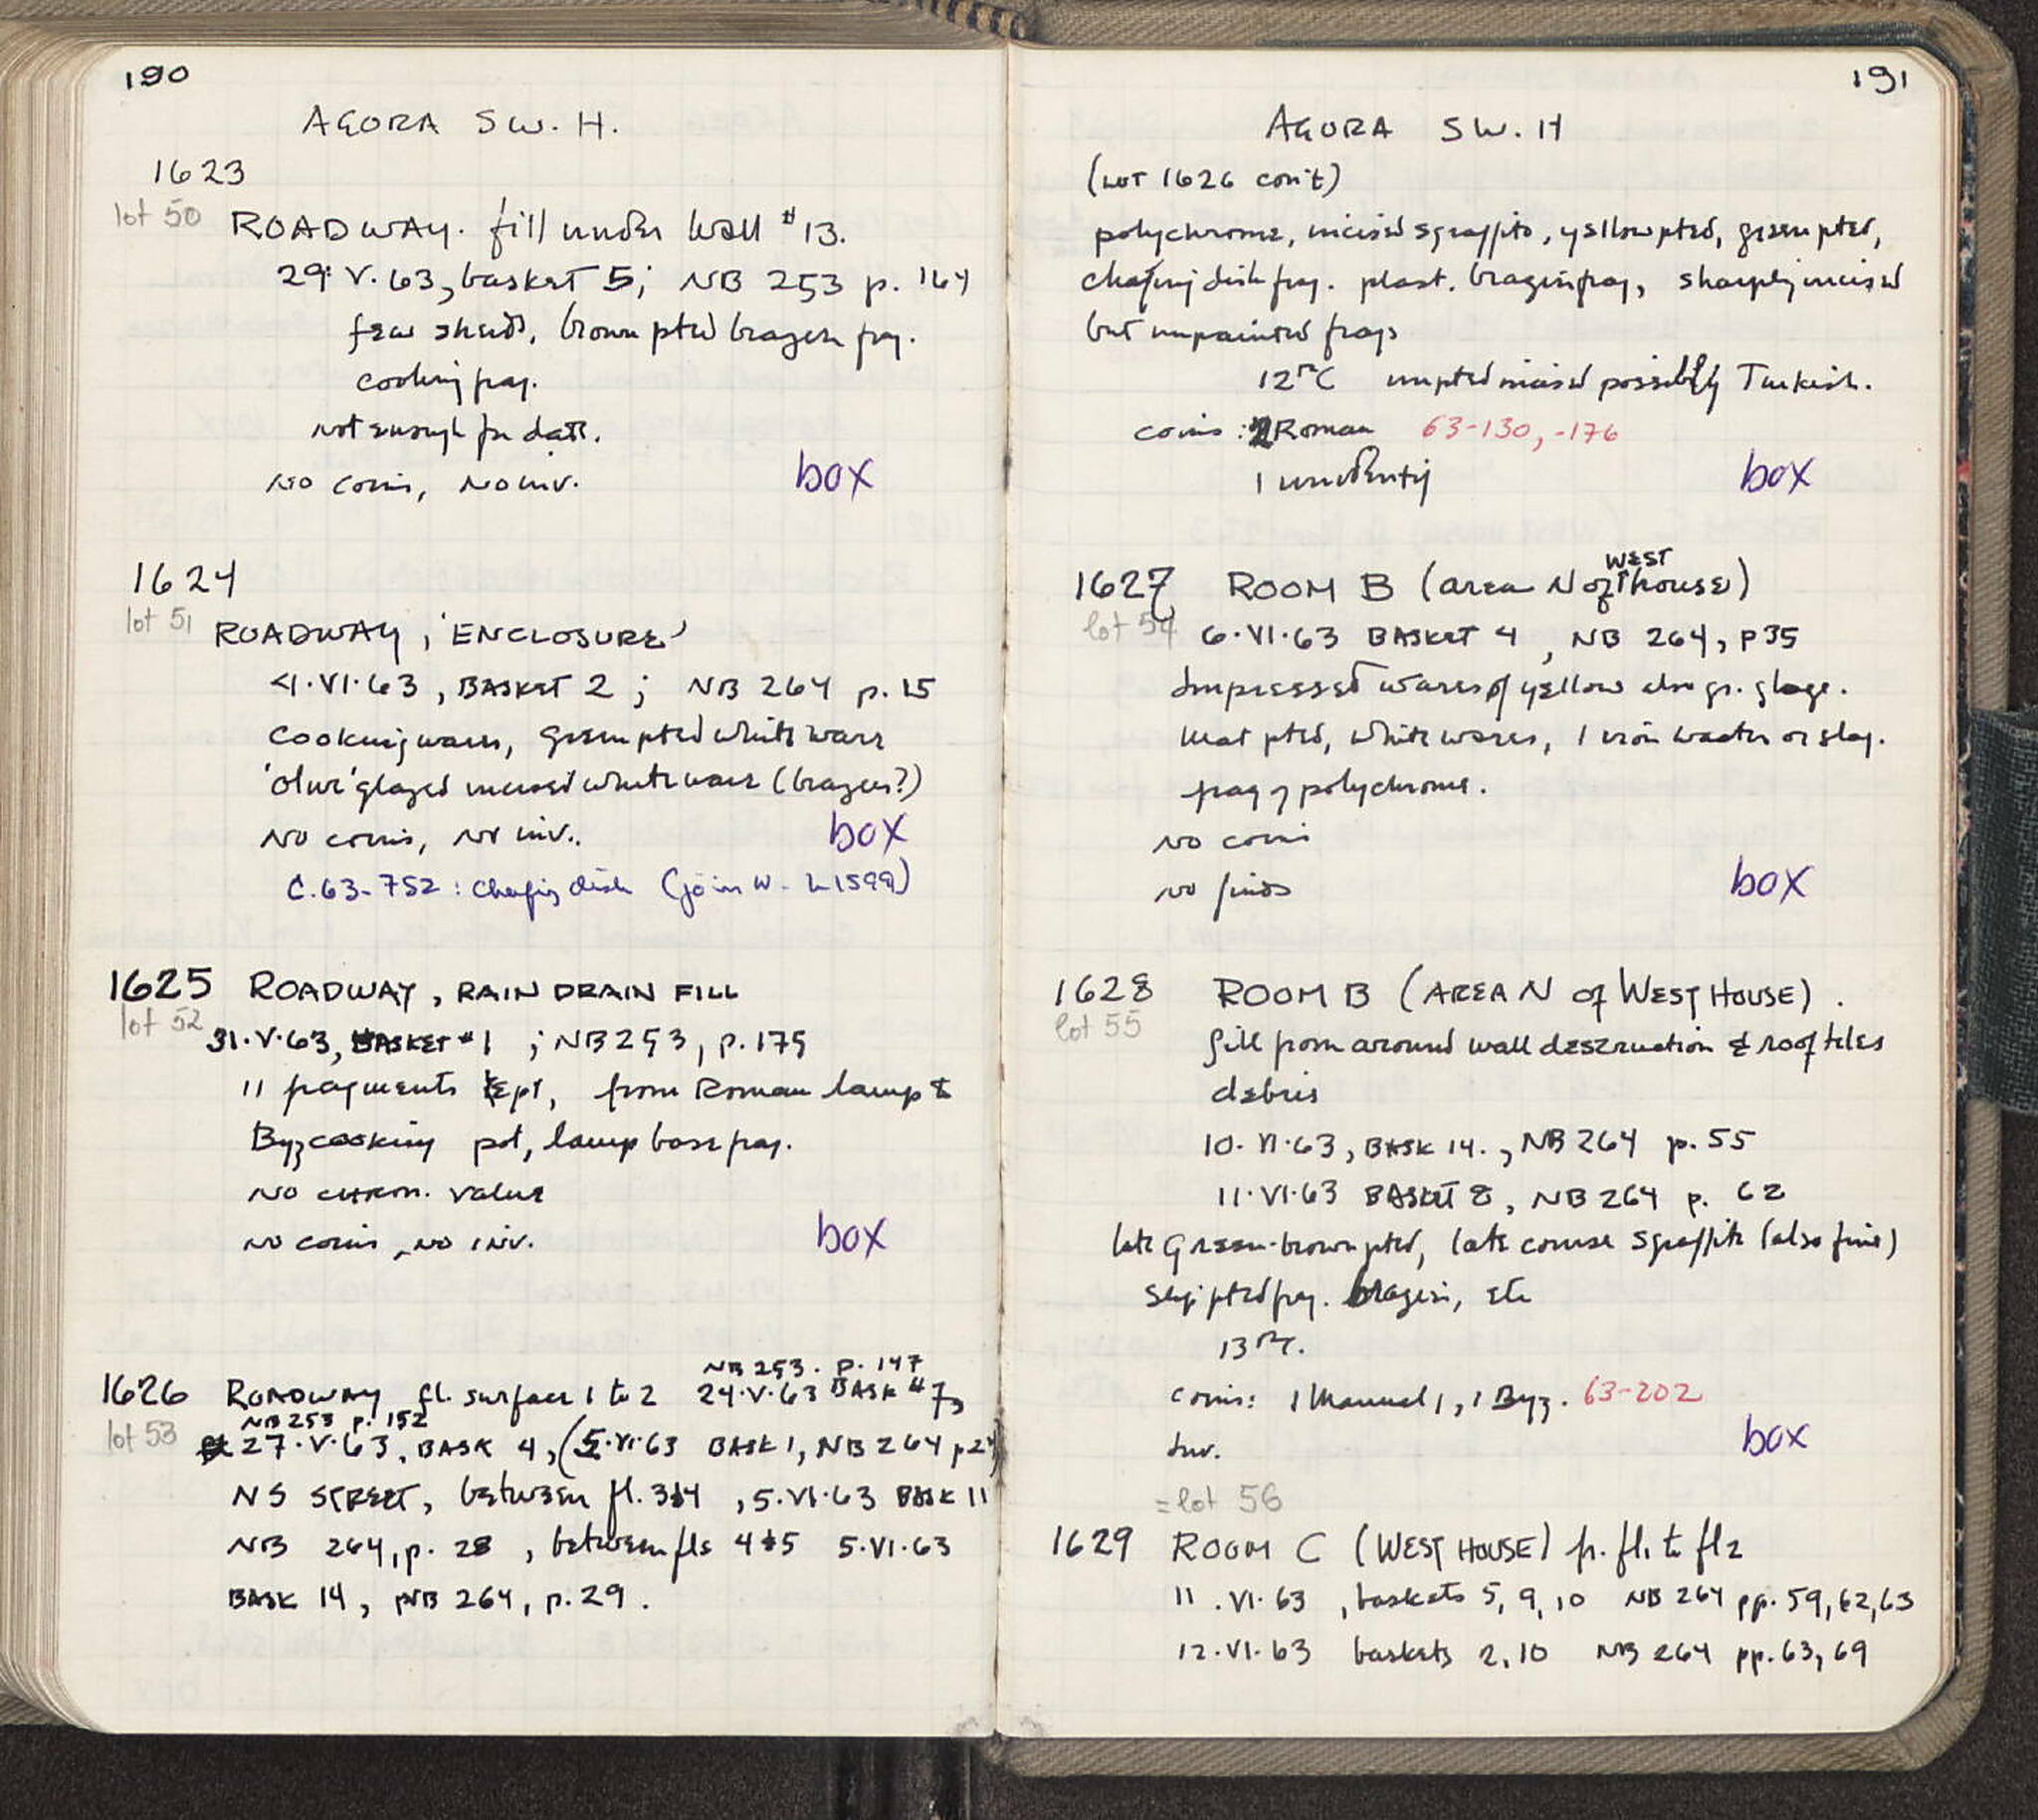 190
AGORA SW. H.
1623
lot 50
ROADWAY. fill under wall #13.
29.V.63, basket 5; NB 253 p. 164
few sherds, brown pted brazier frag.
cooking frag.
not enough for date.
No coins, No inv. box
1624
lot 51
ROADWAY, 'ENCLOSURE'
4.VI.63, BASKET 2; NB 264 p. 15
Cooking wares, green pted white ware
'olive' glazed incised white ware (brazier?)
No coins, No inv. box
C.63-752: Chafing dish (join w. L1599)
1625 ROADWAY, RAIN DRAIN FILL
lot 52
31.V.63, BASKET #1 ; NB 253, p. 175
11 fragments kept, from Roman lamp &
Byz cooking pot, lamp base frag.
No chron. value
No coins, no inv. box
NB 253. p. 147
1626 ROADWAY fl. surface 1 to 2 24.V.63 BASK #7,
lot 53
NB 253 p. 152
27.V.63, BASK 4, (5.VI.63 BASK 1, NB 264 p 24)
NS STREET, between fl. 3&4, 5.VI.63 BASK 11
NB 264, p. 28, between fls 4&5 5.VI.63
BASK 14, NB 264, p. 29.
191
AGORA SW. H
(LOT 1626 con't)
polychrome, incised sgraffito, yellow pted, green pted,
chafing dish frag. plast. brazier frag, sharply incised
but unpainted frags
12th C unpted incised possibly Turkish.
coins: 2 Roman 63-130, -176
1 unidentif box
1627 ROOM B (area N of WEST house)
lot 54
6.VI.63 BASKET 4, NB 264, p 35
Impressed wares of yellow also gr. glaze.
Meas pted, white wares, 1 iron waster or slag.
frag of polychrome.
No coins
no finds box
1628 ROOM B (AREA N of WEST HOUSE).
lot 55
fill from around wall destruction & roof tiles
debris
10.VI.63, BASK 14., NB 264 p. 55
11.VI.63 BASKET 8, NB 264 p. 62
late green-brown pted, late coarse sgraffito (also fine)
slip pted frag. brazier, etc
13th C.
coins: 1 Manuel I, 1 Byz. 63-202
Inv. box
= lot 56
1629 ROOM C (WEST HOUSE) fr. fl 1 to fl 2
11.VI.63, baskets 5, 9, 10 NB 264 pp. 59, 62, 63
12.VI.63 baskets 2, 10 NB 264 pp. 63, 69